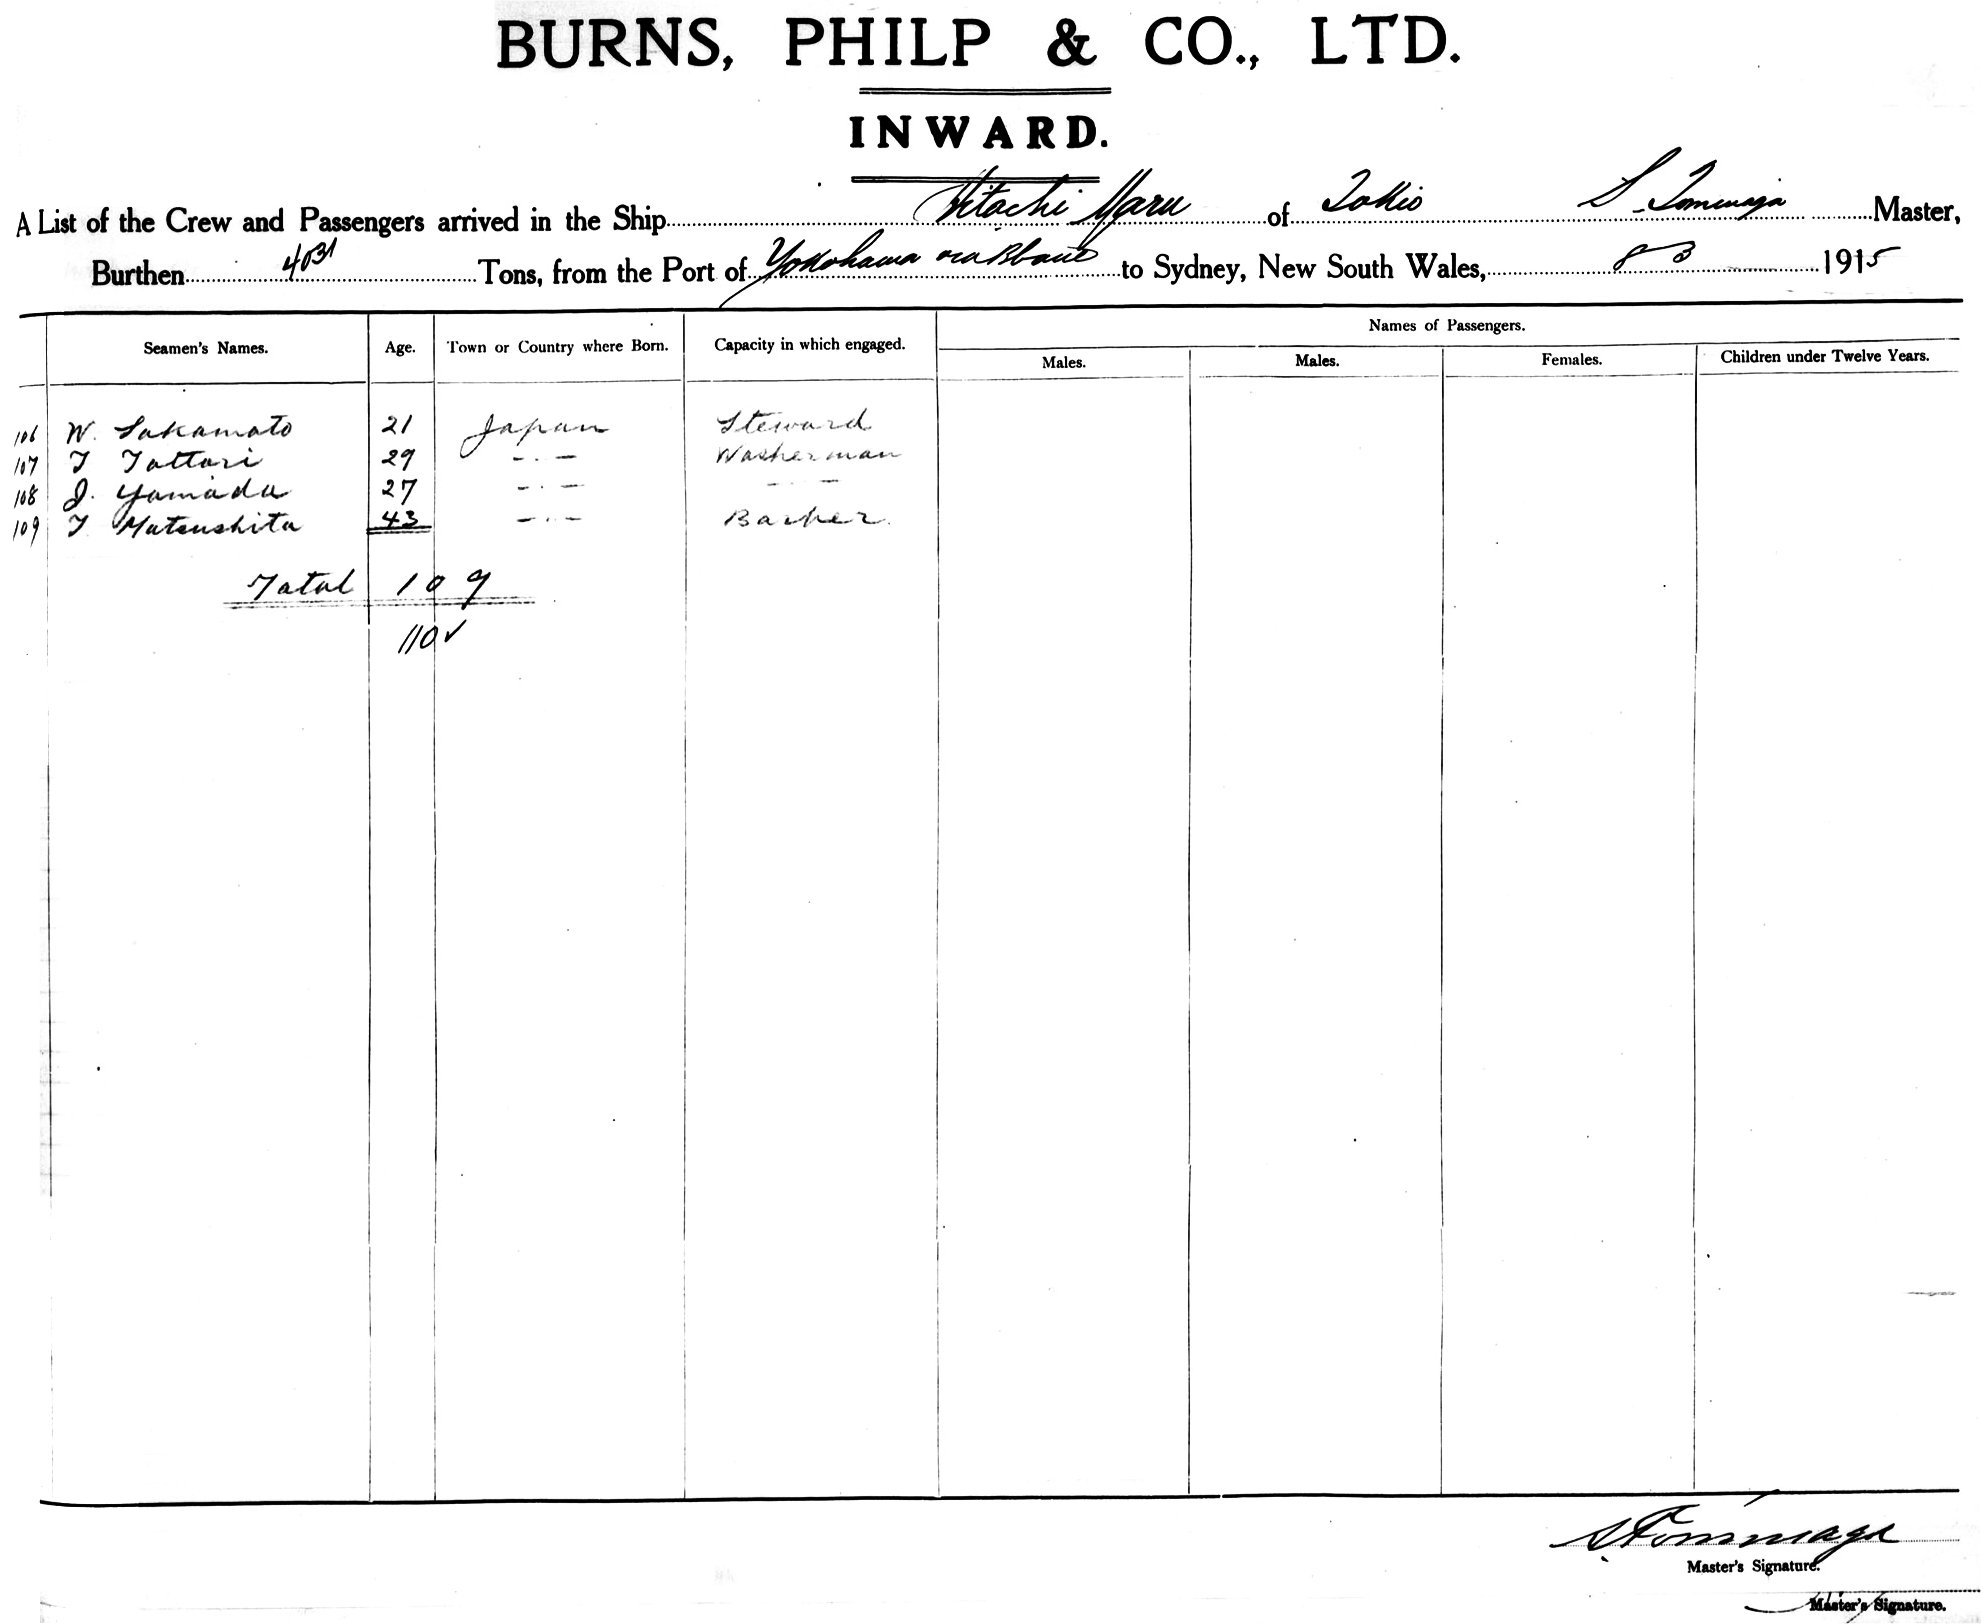 BURNS, PHILP & CO., LTD.
INWARD.
A List of the Crew and Passengers arrived in the Ship Hitachi Maru of Tokio S. Tominaga Master,
Burthen 4031 Tons, from the Port of Yokohama via Bbane to Sydney, New South Wales, 8 3 1915
Names of Passengers.
Seamen's Names. Age. Town or Country where Born. Capacity in which engaged. Males. Males. Females. Children under Twelve Years.
106 W. Sakamato 21 Japan Steward
107 T Tattari 29 -.- Washerman
108 J. Yamada 27 -.- -.-
109 T Matsushita 43 -.- Barber.
Total 109
110 ✓
S Tominaga
Master's Signature.
Master's Signature.